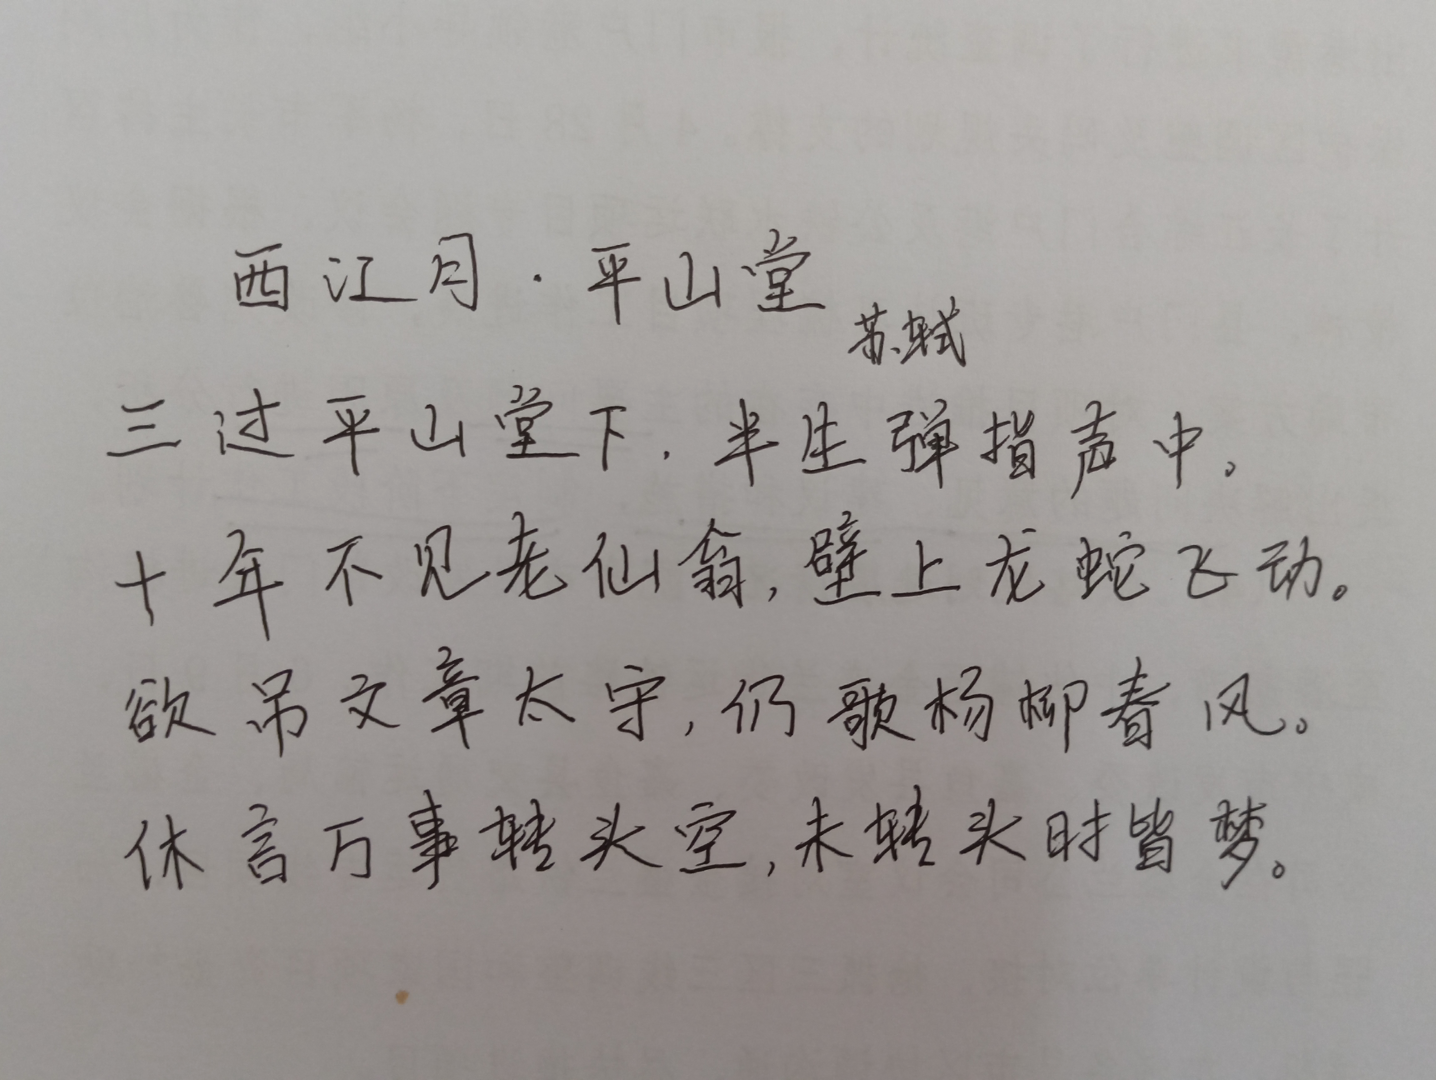 西江月·平山堂
苏轼
三过平山堂下,半生弹指声中。
十年不见老仙翁,壁上龙蛇飞动。
欲吊文章太守,仍歌杨柳春风。
休言万事转头空,未转头时皆梦。